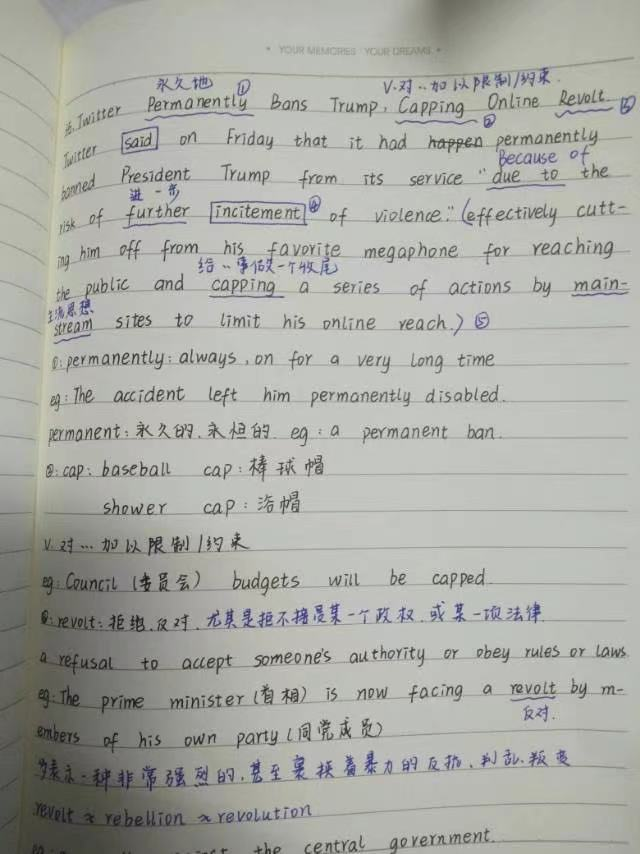 YOUR MEMORIES YOUR DREAMS
永久地 ① V.对…加以限制/约束.
Twitter Permanently Bans Trump, Capping Online Revolt ③
②
Twitter said on Friday that it had happen permanently
Because of
banned President Trump from its service "due to the
进一步
risk of further incitement ④ of violence." (effectively cutt-
ing him off from his favorite megaphone for reaching
给…事做一个收尾
the public and capping a series of actions by main-
主流思想
stream sites to limit his online reach.) ⑤
①: permanently: always, on for a very long time
eg: The accident left him permanently disabled.
permanent: 永久的、永恒的. eg: a permanent ban.
②: cap: baseball cap: 棒球帽
shower cap: 浴帽
V. 对…加以限制/约束
eg: Council (委员会) budgets will be capped.
③: revolt: 拒绝、反对、尤其是拒不接受某一个政权、或某一项法律
a refusal to accept someone's authority or obey rules or laws.
eg: The prime minister (首相) is now facing a revolt by m-
反对.
embers of his own party (同党成员)
表示一种非常强烈的、甚至裹挟着暴力的反抗、判乱、叛变
revolt ≈ rebellion ≈ revolution
the central government.